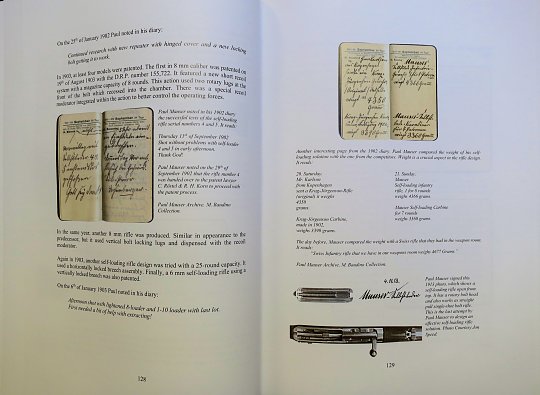 On the 25th of January 1902 Paul noted in his diary:
Continued research with new repeater with hinged cover and a new locking
bolt getting it to work.
In 1903, at least four models were patented. The first in 8 mm caliber was patented on
19th of August 1903 with the D.R.P. number 155,722. It featured a new short recoil
system with a magazine capacity of 8 rounds. This action used two rotary lugs at the
front of the bolt which recessed into the chamber. There was a special recoil
moderator integrated within the action to better control the operating forces.
Paul Mauser noted in his 1902 diary
the successful tests of the self-loading
rifle serial numbers 4 and 5. It reads:
Thursday 11th of September 1902
Shot without problems with self-loader
4 and 5 in early afternoon.
Thank God!
Paul Mauser noted on the 29th of
September 1902 that the rifle number 4
was handed over to the patent lawyer
C. Röstel & R. H. Korn to proceed with
the patent process.
Paul Mauser Archive. M. Baudino
Collection.
In the same year, another 8 mm rifle was produced. Similar in appearance to the
predecessor, but it used vertical bolt locking lugs and dispensed with the recoil
moderator.
Again in 1903, another self-loading rifle design was tried with a 25-round capacity. It
used a horizontally locked breech assembly. Finally, a 6 mm self-loading rifle using a
vertically locked breech was also patented.
On the 6th of January 1903 Paul noted in his diary:
Afternoon shot with lightened 8-loader and 1-10 loader with last lot.
First needed a bit of help with extracting!
128
Another interesting page from the 1902 diary. Paul Mauser compared the weight of his self-
loading solution with the one from the competitors. Weight is a crucial aspect in the rifle design.
It reads:
20. Saturday.
Mr. Karlson
from Kopenhagen
sent a Krag-Jörgensen-Rifle
(original) it weighs
4350
grams
Krag-Jörgensen Carbine,
made in 1902,
weighs 3390 grams.
21. Sunday.
Mauser
Self-loading infantry
rifle, 1 for 8 rounds
weighs 4366 grams
Mauser Self-loading Carbine
for 7 rounds
weighs 3360 grams
The day before, Mauser compared the weight with a Swiss rifle that they had in the weapon room.
It reads:
"Swiss Infantry rifle that we have in our weapon room weighs 4677 Grams"
Paul Mauser Archive. M. Baudino Collection.
Paul Mauser signed this
1913 photo, which shows a
self-loading rifle open from
top. It has a rotary bolt head
and also works as straight
pull single-shot bolt rifle.
This is the last attempt by
Paul Mauser to design an
effective self-loading rifle
solution. Photo Courtesy Jon
Speed.
129